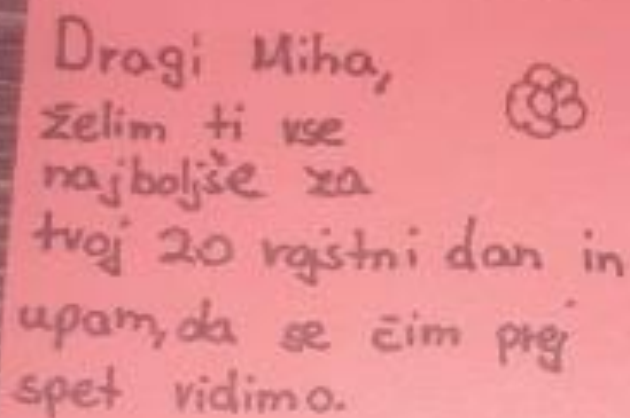 Dragi Miha,
želim ti vse
najboljše za
tvoj 20 rojstni dan in
upam, da se čim prej
spet vidimo.